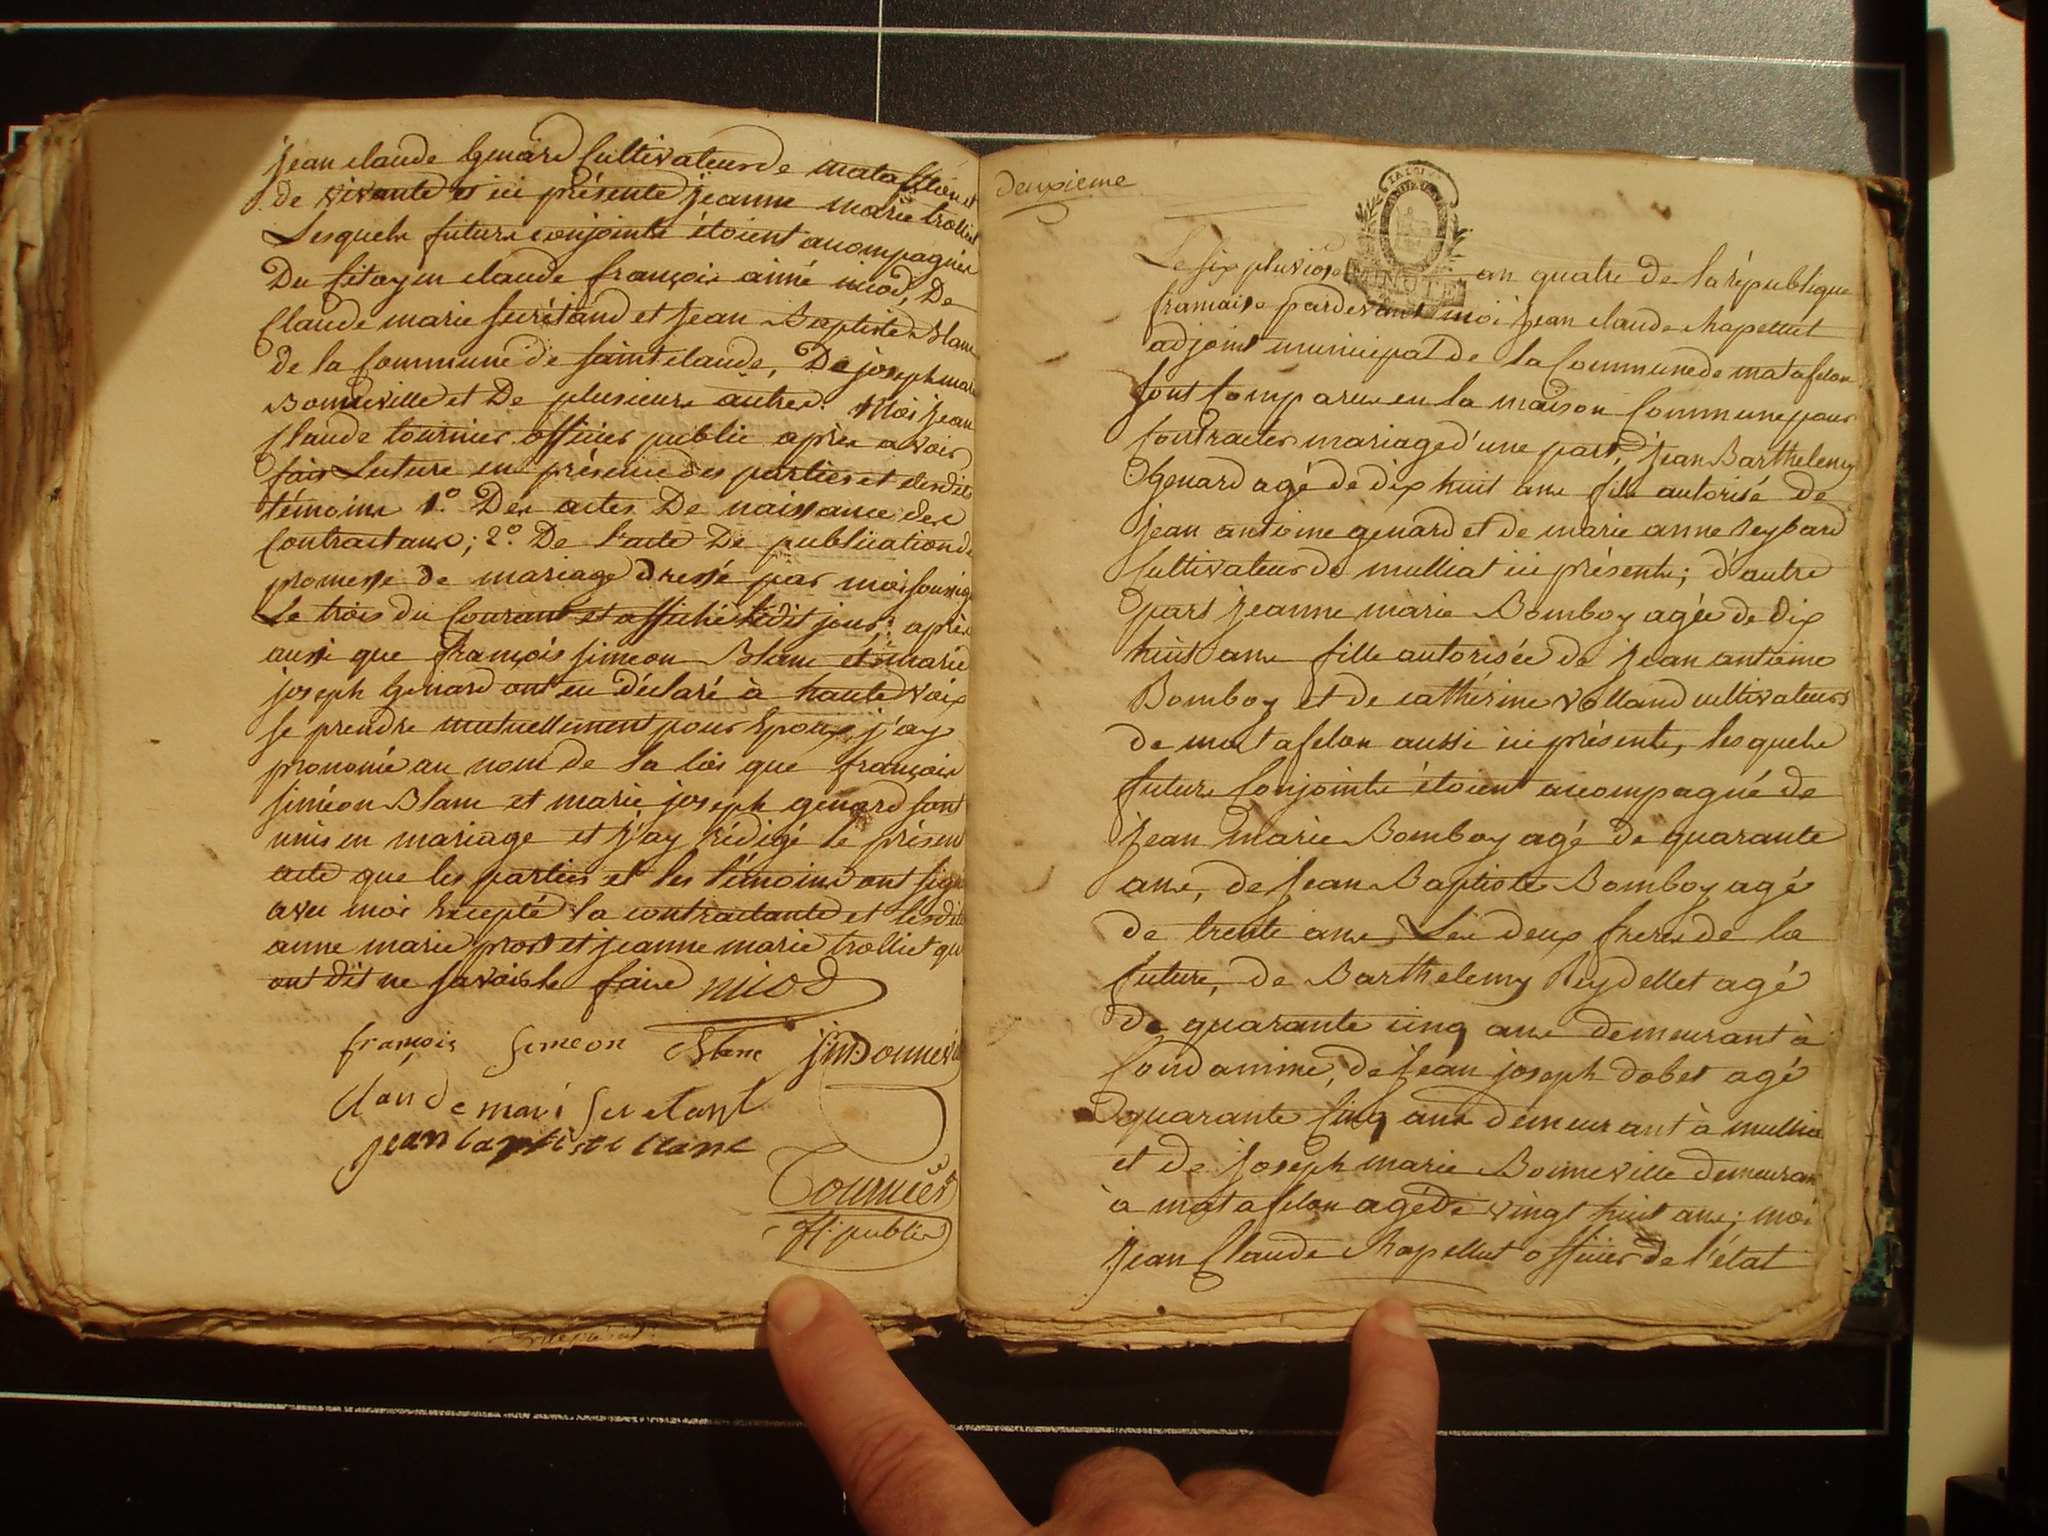 jean claude Genard Cultivateur de mataffelon et
de vivante et ici présente jeanne marie trolliet
Lesquels futurs conjoints étoient acompagnés
Du Citoyen claude françois aimé nicod, De
Claude marie secrétand et jean Baptiste Blanc
de la Commune de saint claude, De joseph marie
Bonneville et De plusieurs autres. Moi jean
Claude tournier officier public après avoir
fait Lecture en présence des parties et desdits
témoins 1.° Des actes De naissance des
Contractans; 2.° De l'acte De publication de
promesse de mariage dressé par moi soussigné
Le trois du Courant et affiché ledit jour; après
aussi que françois simeon Blanc et marie
joseph Genard ont eu déclaré à haute voix
se prendre mutuellement pour Epoux, j'ay
prononcé au nom de la loi que françois
siméon Blanc et marie joseph genard sont
unis en mariage et j'ay rédigé le présent
acte que les parties et les témoins ont signé
avec moi Excepté la contractante et lesdites
anne marie prost et jeanne marie trolliet qui
ont dit ne savoir le faire nicod
françois simeon Blanc j:m: Bonneville
Claude mari secretant
jean baptiste blanc
Tournier
off: public
deuxieme
MINUTE
Le six pluviose an quatre de la république
francaise pardevant moi jean claude chapellut
adjoint municipal de la Commune de matafelon
sont Comparus en la maison Commune pour
Contracter mariage d'une part, jean Barthelemy
Genard agé de dix huit ans fils autorisé de
jean antoine genard et de marie anne Reybard
Cultivateurs de mulliat ici présents; d'autre
part jeanne marie Bomboy agée de dix
huit ans fille autorisée de jean antoine
Bomboy et de cathérine volland cultivateurs
de matafelon aussi ici présents, lesquels
futurs Conjoints étoient acompagné de
jean marie Bomboy agé de quarante
ans, de jean Baptiste Bomboy agé
de trente ans, Les deux freres de la
future, de Barthelemy Reydellet agé
de quarante cinq ans demeurant à
Condamine, de jean joseph dobet agé
quarante Cinq ans demeurant à mulliat
et de joseph marie Bonneville demeurant
à matafelon agé de vingt huit ans; moi
jean Claude Chapellut officier de l'état